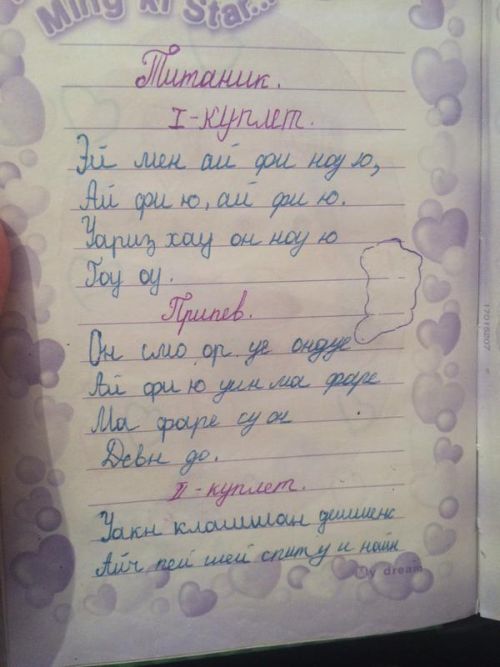 Ming xi Star...
Титаник.
I-куплет.
Эй мен ай фи ноу ю,
Ай фи ю, ай фи ю.
Уариз хау он ноу ю
Гоу оу.
Припев.
Он смо ор уе ондуе
Ай фи ю уин ма фаре
Ма фаре су он
Девн до.
II-куплет.
Уакн клашшан дешшенс
Айч пей шей спиту и найн
My dream
170162007